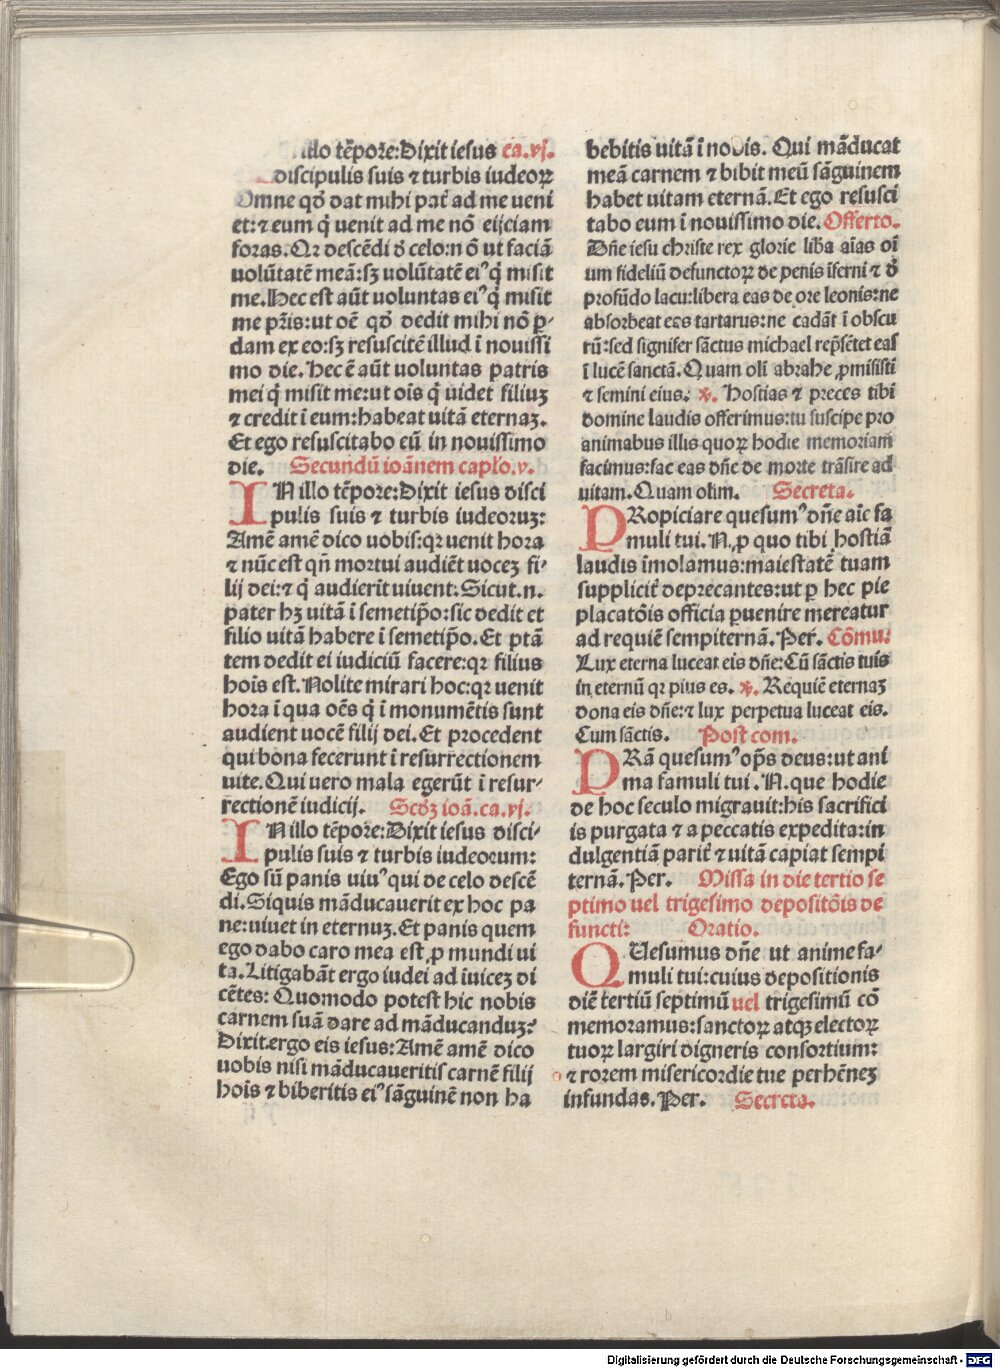 illo tēpore: Dixit iesus ca.vj.
discipulis suis ⁊ turbis iudeoꝝ
Omne qď dat mihi pať ad me veni
et: ⁊ eum q̇ venit ad me nō eijciam
foras. Qꝛ descēdi ď celo: nō ut faciā
volūtatē meā: sꝫ volūtatē eiꝰ q̇ misit
me. Hec est aūt voluntas eiꝰ q̇ misit
me pr̄is: ut oē qď dedit mihi nō ꝑ-
dam ex eo: sꝫ resuscitē illud ī novissi
mo die. Hec ē aūt voluntas patris
mei q̇ misit me: ut oīs q̇ videt filiuꝫ
⁊ credit ī eum: habeat vitā eternaꝫ.
Et ego resuscitabo eū in novissimo
die. Secundū ioānem caplo.v.
IN illo tēpore: Dixit iesus disci
pulis suis ⁊ turbis iudeoruꝫ:
Amē amē dico vobis: qꝛ venit hora
⁊ nūc est qn̄ mortui audiēt voceꝫ fi-
lij dei: ⁊ q̇ audierīt vivent. Sicut .n.
pater hꝫ vitā ī semetip̄o: sic dedit et
filio vitā habere ī semetip̄o. Et ptā
tem dedit ei iudiciū facere: qꝛ filius
hoīs est. Nolite mirari hoc: qꝛ venit
hora ī qua oēs q̇ ī monumētis sunt
audient vocē filij dei. Et procedent
qui bona fecerunt ī resurrectionem
vite. Qui vero mala egerūt ī resur-
rectionē iudicij. Scďꝫ ioā.ca.vj.
IN illo tēpore: Dixit iesus disci-
pulis suis ⁊ turbis iudeorum:
Ego sū panis viuꝰ qui de celo descē
di. Siquis māducaverit ex hoc pa
ne: vivet in eternuꝫ. Et panis quem
ego dabo caro mea est, ꝓ mundi vi
ta. Litigabāt ergo iudei ad īviceꝫ di
cētes: Quomodo potest hic nobis
carnem suā dare ad māducanduꝫ?
Dixit.ergo eis iesus: Amē amē dico
vobis nisi māducaveritis carnē filij
hoīs ⁊ biberitis eiꝰ sāguinē non ha
bebitis vitā ī nobis. Qui māducat
meā carnem ⁊ bibit meū sāguinem
habet vitam eternā. Et ego resusci
tabo eum ī novissimo die. Offerto.
Dn̄e iesu christe rex glorie libra aīas oī
um fideliū defunctoꝝ de penis īferni ⁊ ď
profūdo lacu: libera eas de ore leonis: ne
absorbeat eas tartarus: ne cadāt ī obscu
rū: sed signifer sāctus michael repn̄setet eas
ī lucē sanctā. Quam olī abrahe ꝓmisisti
⁊ semini eius. ℣. Hostias ⁊ preces tibi
domine laudis offerimus: tu suscipe pro
animabus illis quoꝝ hodie memoriam
facimus: fac eas dn̄e de morte trāsire ad
vitam. Quam olim. Secreta.
PRopiciare quesumꝰ dn̄e aīe fa
muli tui. N. ꝓ quo tibi hostiā
laudis īmolamus: maiestatē tuam
suppliciť deprecantes: ut ꝑ hec pie
placatōis officia ꝑvenire mereatur
ad requiē sempiternā. Per. Cōmu.
Lux eterna luceat eis dn̄e: Cū sāctis tuis
in eternū qꝛ pius es. ℣. Requiē eternaꝫ
dona eis dn̄e: ⁊ lux perpetua luceat eis.
Cum sāctis. Post com.
PRā quesumꝰ op̄s deus: ut ani
ma famuli tui. N. que hodie
de hoc seculo migravit: his sacrifici
is purgata ⁊ a peccatis expedita: in
dulgentiā pariť ⁊ vitā capiat sempi
ternā. Per. Missa in die tertio se
ptimo vel trigesimo depositōis de
functi: Oratio.
QUesumus dn̄e ut anime fa-
muli tui: cuius depositionis
diē tertiū septimū vel trigesimū cō
memoramus: sanctoꝝ atqꝫ electoꝝ
tuoꝝ largiri digneris consortium:
⁊ rorem misericordie tue perhēneꝫ
infundas. Per. Secreta.
Digitalisierung gefördert durch die Deutsche Forschungsgemeinschaft - DFG